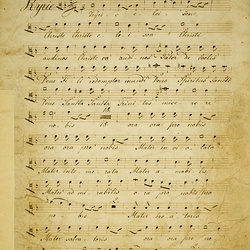 Kyrie
Christe Christe e le i son Christe
audi nos Christe ex audi nos Pater de Coelis
Deus Fi li redemptor mundi Deus Spiritus Sancte
Deus Sancta Sancta Trini tas mise re re
no bis ora ora pro nobis
ora ora pro nobis Mater in vi o lata
Mater inte me rata Mater a mabi lis
Mater ad mi rabilis ora pro nobis pro
no bis Mater Cre a toris
Mater salva toris ora ora pro no